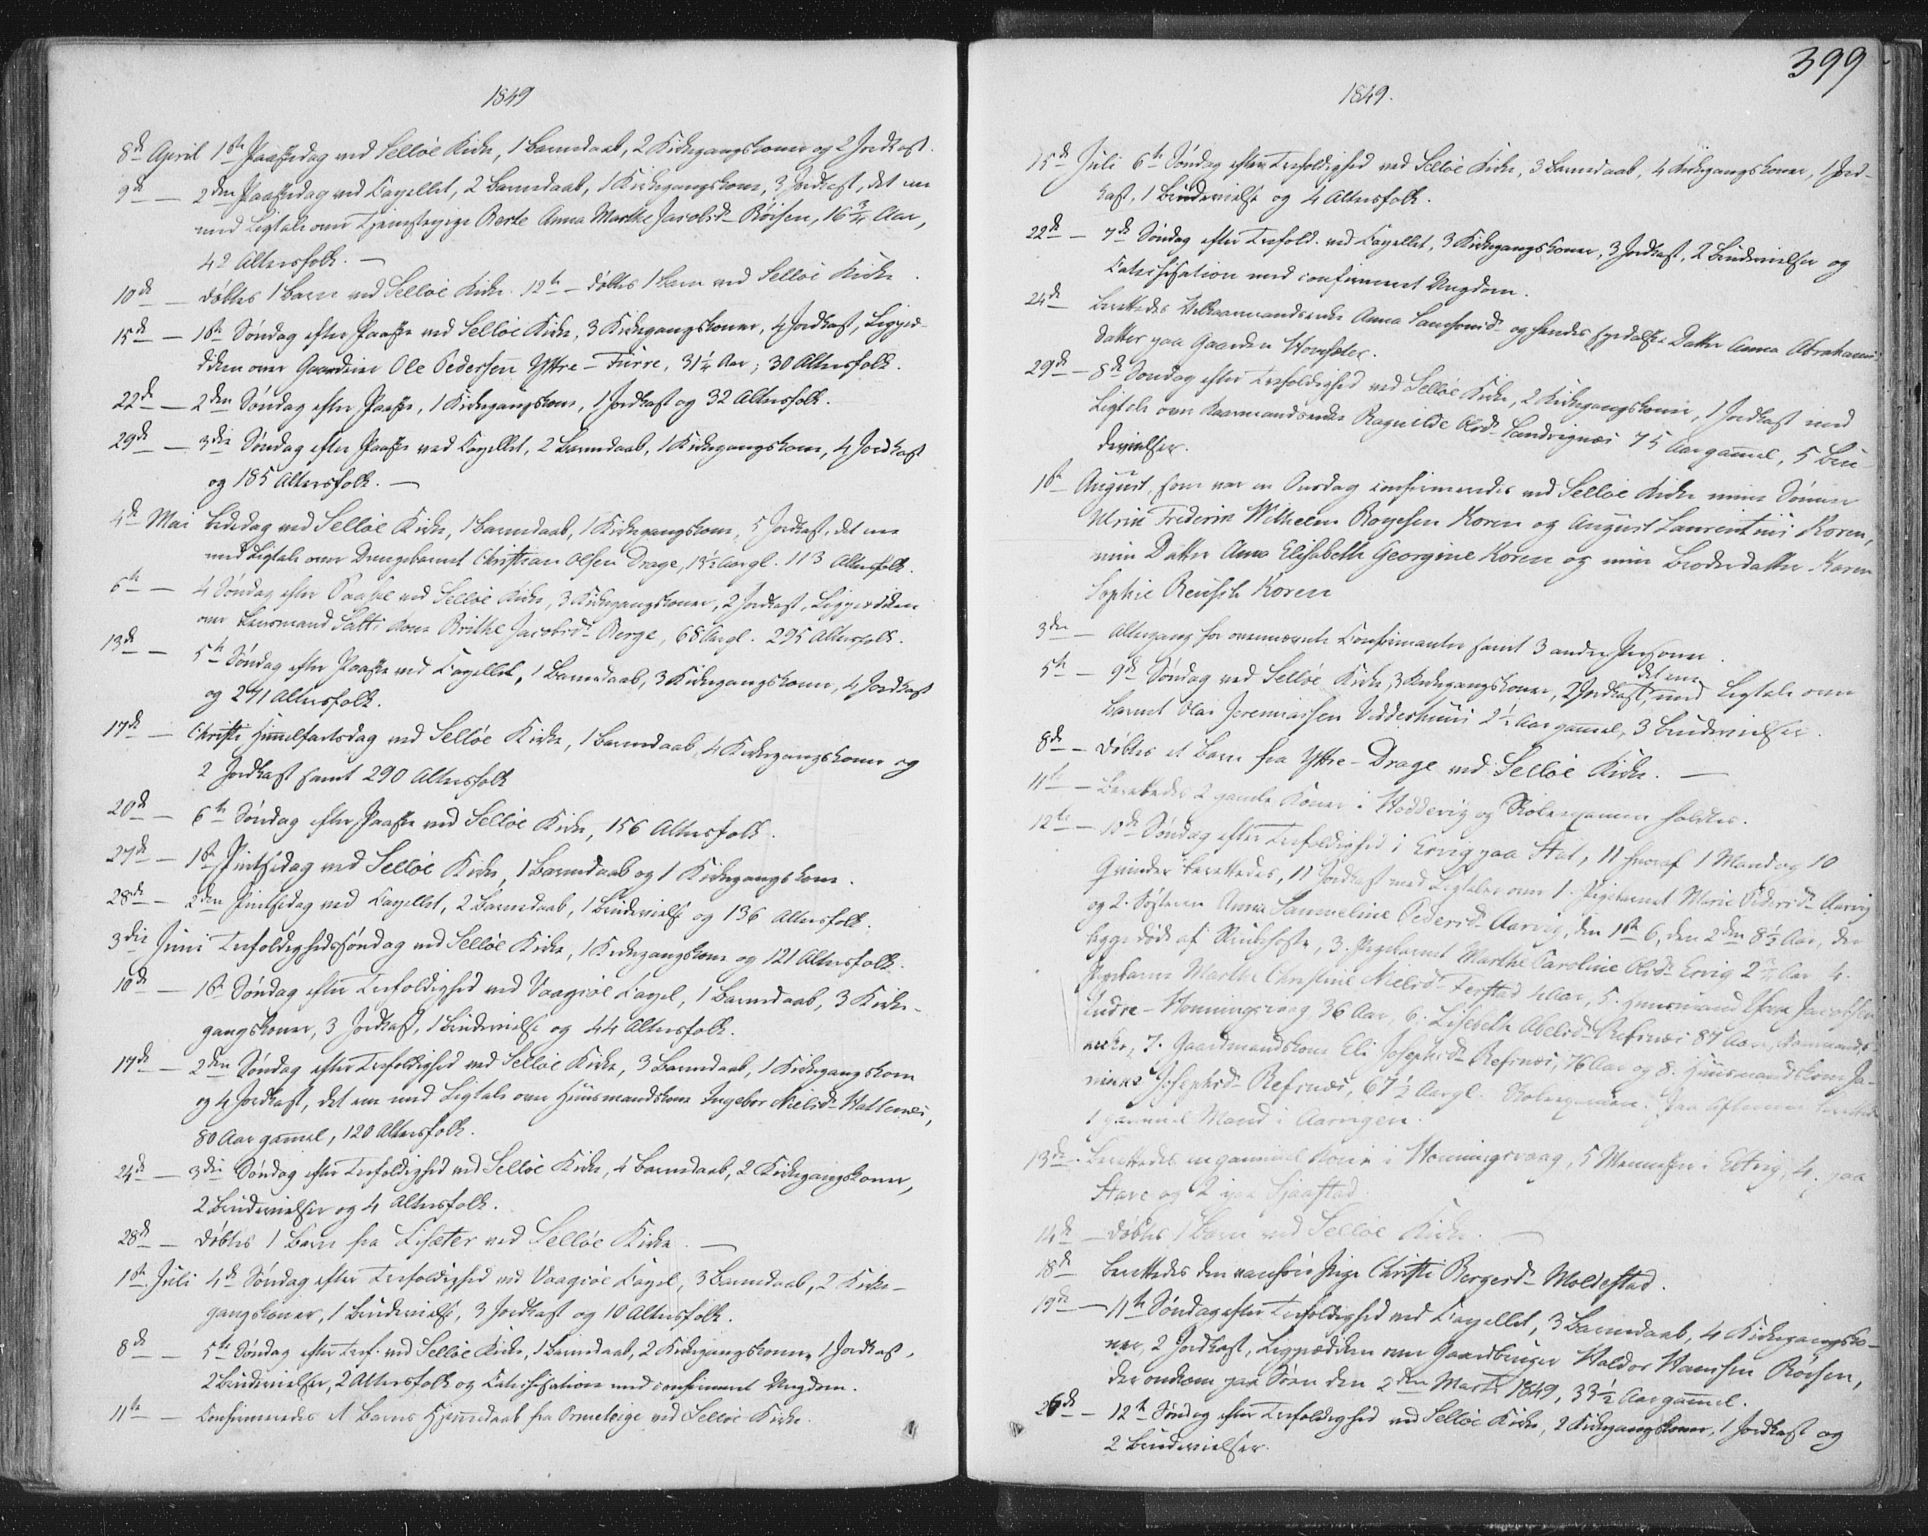 1849
8de April 1ste Paaskedag ved Selløe Kirke, 1 Barnedaab, 2 Kirkegangskoner og 2 Jordkast.
9de — 2den Paaskedag ved Capellet, 2 Barnedaab, 1 Kirkegangskone, 3 Jordkast, det ene
med Ligtale over Tjenestepige Berte Anna Marthe Jacobsd. Røisen, 16 3/4 Aar,
42 Altersfolk. —
10de — døbtes 1 Barn ved Selløe Kirke. 12te — døbtes 1 Barn ved Selløe Kirke.
15de — 1ste Søndag efter Paaske ved Selløe Kirke, 3 Kirkegangskoner, 4 Jordkast, Ligpræ-
diken over Gaardmand Ole Pedersen Yttre-Furre, 31 1/4 Aar; 30 Altersfolk.
22de — 2den Søndag efter Paaske, 1 Kirkegangskone, 1 Jordkast og 32 Altersfolk.
29de — 3die Søndag efter Paaske ved Capellet, 2 Barnedaab, 1 Kirkegangskone, 4 Jordkast
og 185 Altersfolk. —
4de Mai Bededag ved Selløe Kirke, 1 Barnedaab, 1 Kirkegangskone, 5 Jordkast, det ene
med Ligtale over Drengebarnet Christian Olsen Drage, 1 1/2 Aar gl. 113 Altersfolk.
6te — 4 Søndag efter Paaske ved Selløe Kirke, 3 Kirkegangskoner, 2 Jordkast, Ligprædiken
over Lensmand Kone Brithe Jacobsd. Berge, 68 Aar gl. 295 Altersfolk.
13de — 5te Søndag efter Paaske ved Capellet, 1 Barnedaab, 3 Kirkegangskoner, 4 Jordkast
og 271 Altersfolk.
17de — Christi Himmelfartsdag ved Selløe Kirke, 1 Barnedaab, 4 Kirkegangskoner og
2 Jordkast samt 290 Altersfolk
20de — 6te Søndag efter Paaske ved Selløe Kirke, 156 Altersfolk.
27de — 1ste Pintsedag ved Selløe Kirke, 1 Barnedaab og 1 Kirkegangskone.
28de — 2den Pintsedag ved Capellet, 2 Barnedaab, 1 Brudevielse og 136 Altersfolk.
3die Juni Trefoldighedssøndag ved Selløe Kirke, 1 Kirkegangskone og 121 Altersfolk.
10de — 1ste Søndag efter Trefoldighed ved Vaagsøe Capel, 1 Barnedaab, 3 Kirke-
gangskoner, 3 Jordkast, 1 Brudevielse og 44 Altersfolk.
17de — 2den Søndag efter Trefoldighed ved Selløe Kirke, 3 Barnedaab, 1 Kirkegangskone
og 4 Jordkast, det ene med Ligtale over Huusmandskone Ingebor Nielsd. Hatlenes,
80 Aar gammel, 120 Altersfolk.
24de — 3die Søndag efter Trefoldighed ved Selløe Kirke, 4 Barnedaab, 2 Kirkegangskoner,
2 Brudevielser og 4 Altersfolk.
28de — døbtes 1 Barn fra Lisæter ved Selløe Kirke. —
1ste Juli 4de Søndag efter Trefoldighed ved Vaagsøe Capel, 3 Barnedaab, 2 Kirke-
gangskoner, 1 Brudevielse, 3 Jordkast og 10 Altersfolk.
8de — 5te Søndag efter Tref. ved Selløe Kirke, 1 Barnedaab, 2 Kirkegangskoner, 1 Jordkast,
2 Brudevielser, 2 Altersfolk og Catechisation med confirmeret Ungdom.
11te — Confirmeredes et Barns Hjemmedaab fra Ormeløige ved Selløe Kirke.
399
1849.
15de Juli 6te Søndag efter Trefoldighed ved Selløe Kirke, 3 Barnedaab, 4 Kirkegangskoner, 1 Jord-
kast, 1 Brudevielse og 4 Altersfolk.
22de — 7de Søndag efter Trefold. ved Capellet, 3 Kirkegangskoner, 3 Jordkast, 2 Brudevielser og
Catechisation med confirmeret Ungdom.
24de Berettedes Anna og hendes Datter Anna Abrahams-
datter paa Gaarden Hornsæter.
29de — 8de Søndag efter Trefoldighed ved Selløe Kirke, 2 Kirkegangskoner, 1 Jordkast med
Ligtale over Ragnilde Olsd. 75 Aar gammel, 5 Bru-
devielser.
1ste August, som var en Onsdag confirmeredes ved Selløe Kirke mine Sønner
Ulrik Frederik Wilhelm Boyesen Koren og August Laurentius Koren,
min Datter Anna Elisabeth Georgine Koren og min Broderdatter Karen
Sophie Reusch Koren
3die — Altergang for ovennævnte Confirmanter samt 3 andre Personer.
5te — 9de Søndag ved Selløe Kirke, 3 Kirkegangskoner, 2 Jordkast, det ene med Ligtale over
Barnet Olai Jeremiassen 2 1/2 Aar gammel, 3 Brudevielser.
8de — døbtes et Barn fra Yttre-Drage ved Selløe Kirke. —
11te — Berettedes 2 gamle Koner i Hoddevig og Skoleexamen holdtes.
12te — 10de Søndag efter Trefoldighed i Ervig paa Stat, 11 hvoraf 1 Mand og 10
Qvinder berettedes, 11 Jordkast med Ligtaler over 1. Pigebarnet Marie Pedersd. Aarvig
og 2. Søsteren Anne Sammeline Pedersd. Aarvig, den 1ste 6, den 2den 8 1/2 Aar,
begge døde af, 3. Pigebarnet Marthe Caroline Olsd. Ervig 2 Aar 4.
Pigebarnet Marthe Christine Nielsd. Ferstad 4 Aar, 5. Huusmand Jacobsen
Indre-Honningsvaag 36 Aar, 6. Lisebeth Abelsd. Refsnæs 87 Aar,
7. Gaardmandskone Eli Josephsd. Refsnæs, 76 Aar og 8. Huusmandskone
Josephsd. Refsnæs, 67 1/2 Aar gl. Skoleexamen.
1 gammel Mand i Aarvigen.
13de. Berettedes en gammel Kone i Honningsvaag, 5 Mennesker i Ervig, 4. paa
Stave og 2 paa Sjaastad.
14de — døbtes 1 Barn ved Selløe Kirke. —
18de Berettedes den vanføre Pige Christi Bergersd. Moldestad.
19de — 11te Søndag efter Trefoldighed ved Capellet, 3 Barnedaab, 4 Kirkegangsko-
ner, 2 Jordkast, Ligprædiken over Gaardbruger Haldor Hansen Røisen,
der omkom paa Søen den 2den Marts 1849, 33 1/2 Aar gammel.
26de — 12te Søndag efter Trefoldighed ved Selløe Kirke, 2 Kirkegangskoner, 1 Jordkast og
2 Brudevielser.